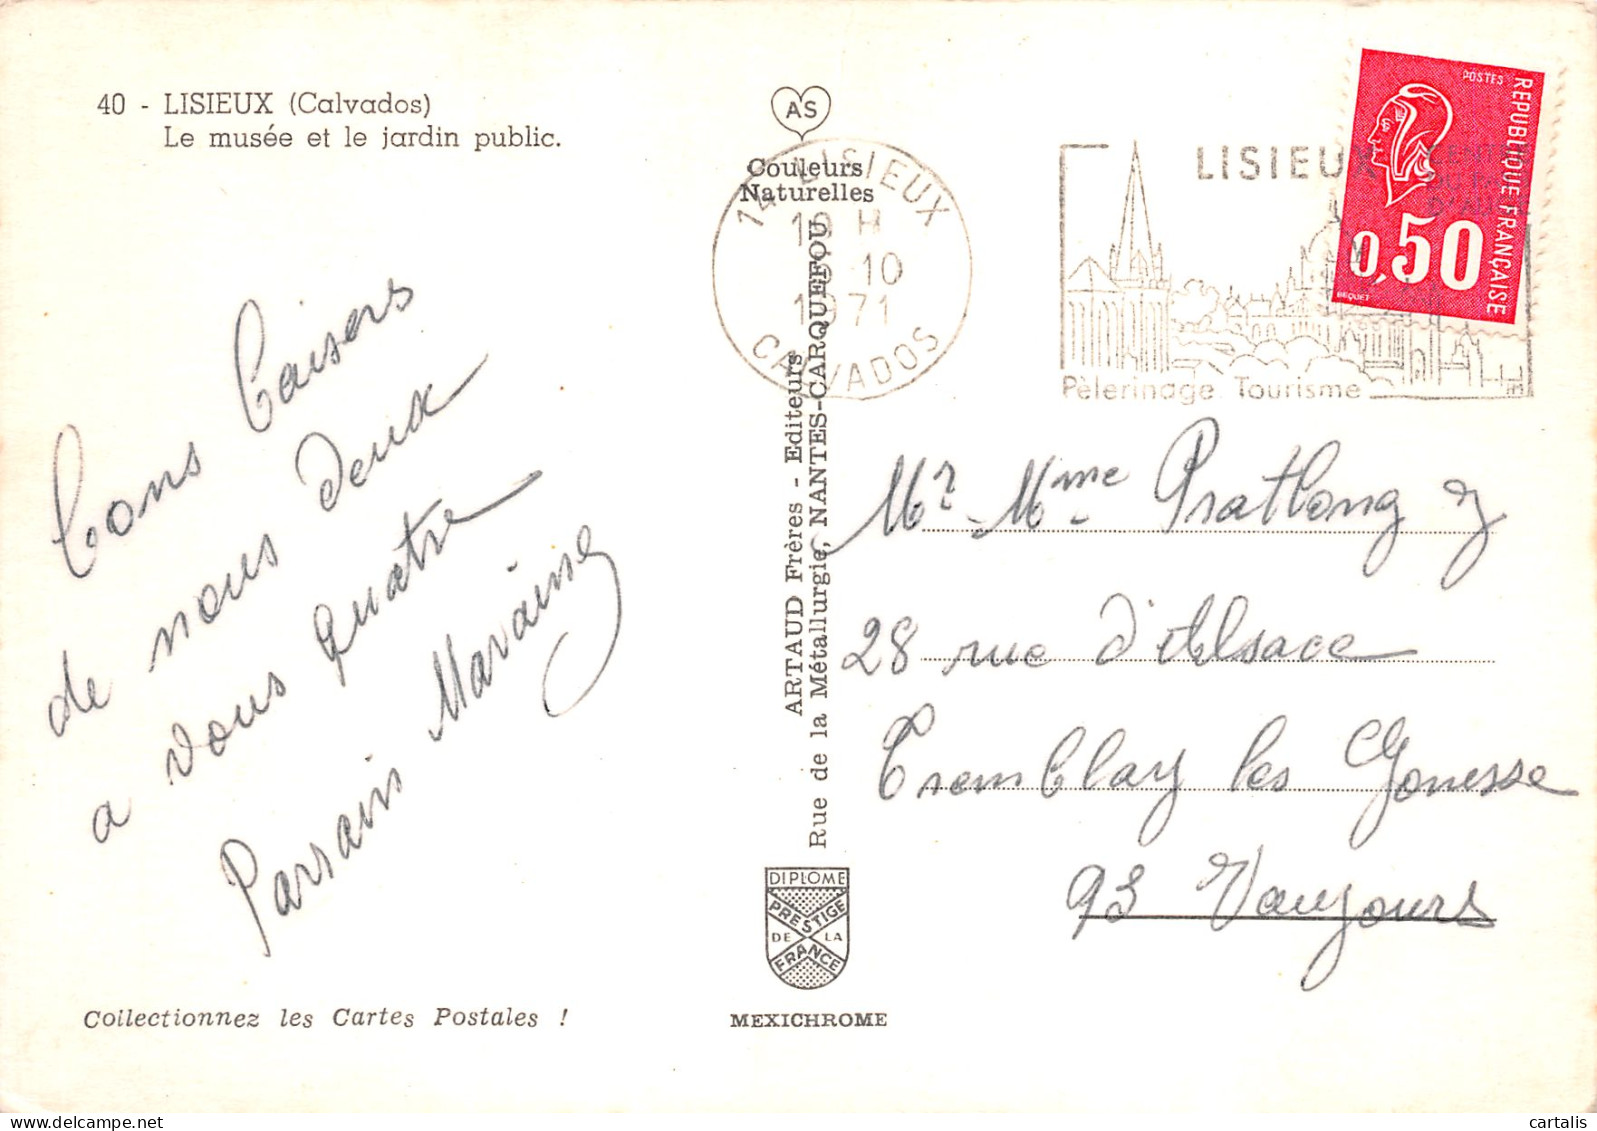 40 - LISIEUX (Calvados)
Le musée et le jardin public.
bons baisers
de nous deux
a vous quatre
Parrain Marraine
Collectionnez les Cartes Postales !
AS
Couleurs
Naturelles
ARTAUD Frères - Editeurs
Rue de la Métallurgie, NANTES-CARQUEFOU
DIPLOME
PRESTIGE
DE LA
FRANCE
MEXICHROME
14 LISIEUX
H
10
1971
CALVADOS
LISIEUX
Pèlerinage Tourisme
POSTES
REPUBLIQUE FRANÇAISE
0,50
BEQUET
Mr Mme Pratlong
28 rue d'Alsace
Tremblay les Gonesse
93 Vaujours
cartalis
delcampe.net